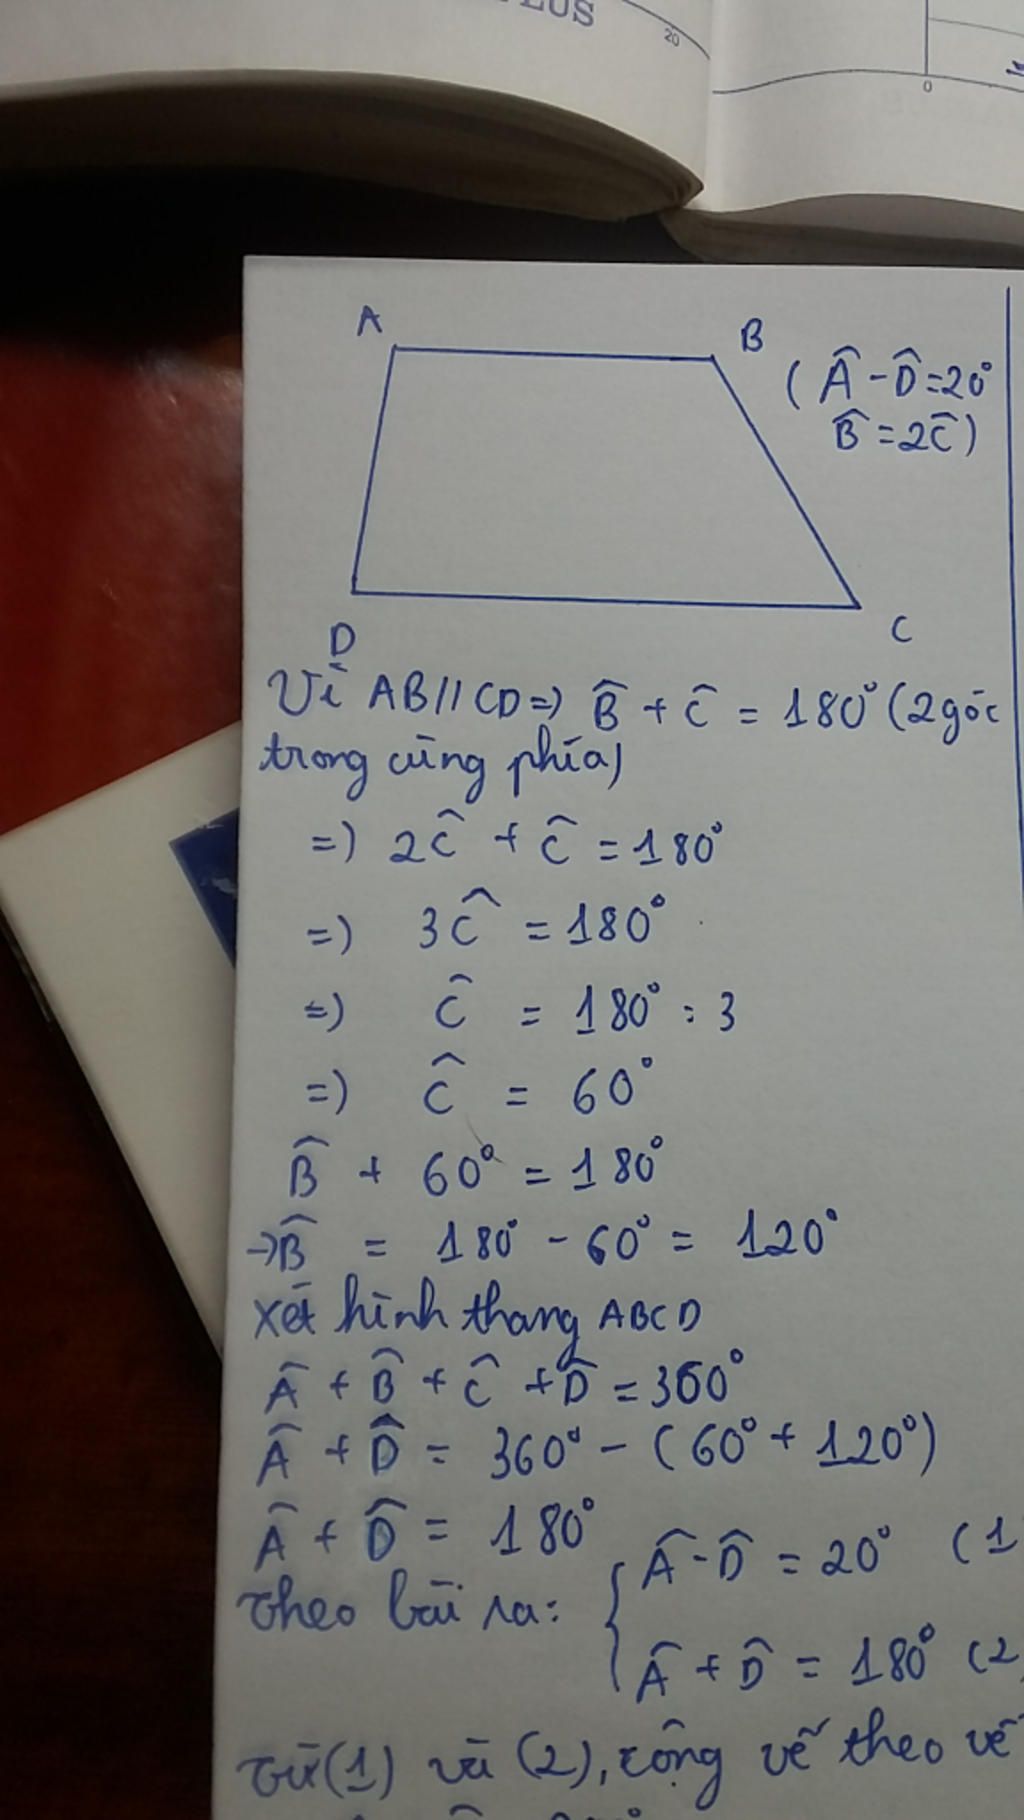 LUS
20
0
A
B
(Â - D̂ = 20°
B̂ = 2Ĉ)
D
C
Vì AB // CD => B̂ + Ĉ = 180° (2 góc
trong cùng phía)
=> 2Ĉ + Ĉ = 180°
=> 3Ĉ = 180°
=> Ĉ = 180° : 3
=> Ĉ = 60°
B̂ + 60° = 180°
→ B̂ = 180° - 60° = 120°
xét hình thang ABCD
Â + B̂ + Ĉ + D̂ = 360°
Â + D̂ = 360° - (60° + 120°)
Â + D̂ = 180°
Theo bài ra: { Â - D̂ = 20° (1
Â + D̂ = 180° (2)
từ (1) và (2), cộng vế theo vế